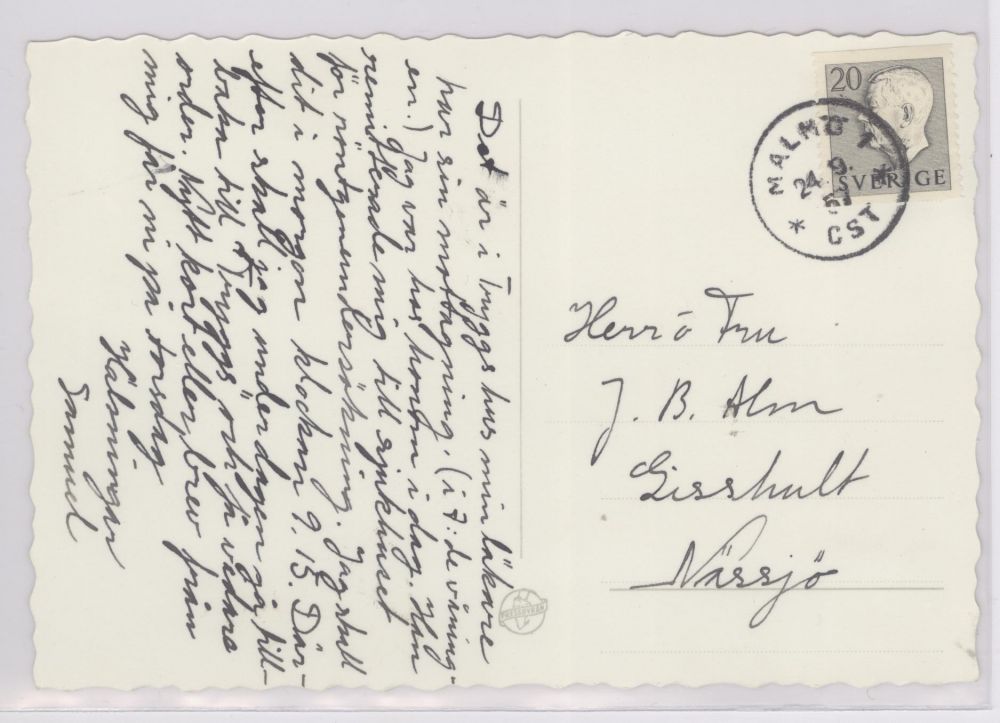 Det är i Tryggs hus min läkare
har sin mottagning. (i 7:de våning-
en.) Jag var hos honom i dag. Han
remitterade mig till sjukhuset
för röntgenundersökning. Jag skall
dit i morgon klockan 9.15. Där-
efter skall jag under dagen gå till-
baka till Tryggs och få vidare
order. Nytt kort eller brev från
mig får ni på torsdag
Hälsningar
Samuel
20
SVERIGE
MALMÖ 1
24 9.
57
CST
Herr o Fru
J. B. Alm
Gisshult
Nässjö
PRESSBYRÅN